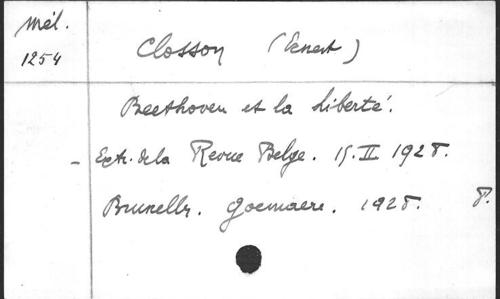 Mél.
1254
Closson (Ernest)
Beethoven et la Liberté.
- Extr. de la Revue Belge. 15. II 1928.
Bruxelles. Goemaere. 1928. 8.